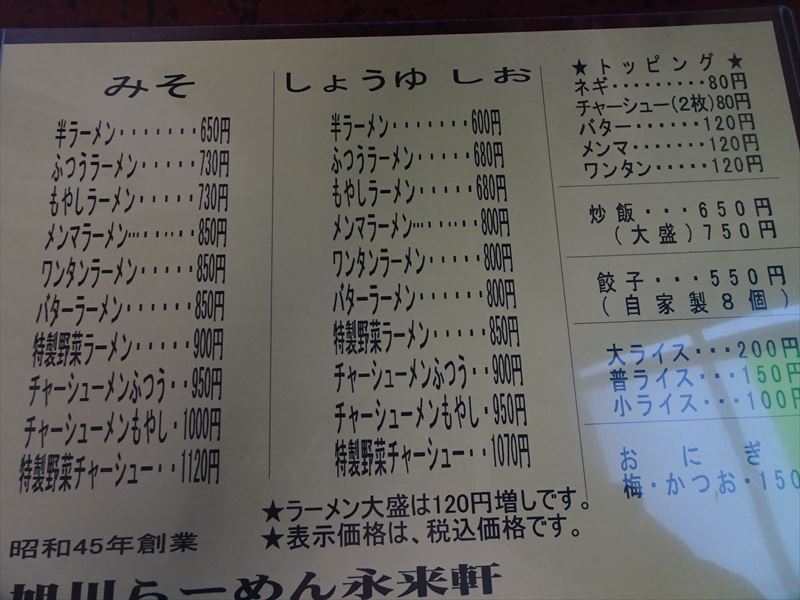 みそ
半ラーメン・・・・・・・650円
ふつうラーメン・・・・・730円
もやしラーメン・・・・・730円
メンマラーメン…・・・・850円
ワンタンラーメン・・・・・850円
バターラーメン・・・・・・850円
特製野菜ラーメン・・・・900円
チャーシューメンふつう・・950円
チャーシューメンもやし・1000円
特製野菜チャーシュー・・1120円
昭和45年創業
旭川らーめん永来軒
しょうゆ しお
半ラーメン・・・・・・・600円
ふつうラーメン・・・・・680円
もやしラーメン・・・・・680円
メンマラーメン…・・・・800円
ワンタンラーメン・・・・・800円
バターラーメン・・・・・・800円
特製野菜ラーメン・・・・850円
チャーシューメンふつう・・900円
チャーシューメンもやし・950円
特製野菜チャーシュー・・1070円
★ラーメン大盛は120円増しです。
★表示価格は、税込価格です。
★トッピング★
ネギ・・・・・・・・・80円
チャーシュー(2枚)80円
バター・・・・・・120円
メンマ・・・・・・・120円
ワンタン・・・・・120円
炒飯・・・650円
(大盛)750円
餃子・・・550円
(自家製8個)
大ライス・・・200円
普ライス・・・150円
小ライス・・・100円
おにぎ
梅・かつお・150